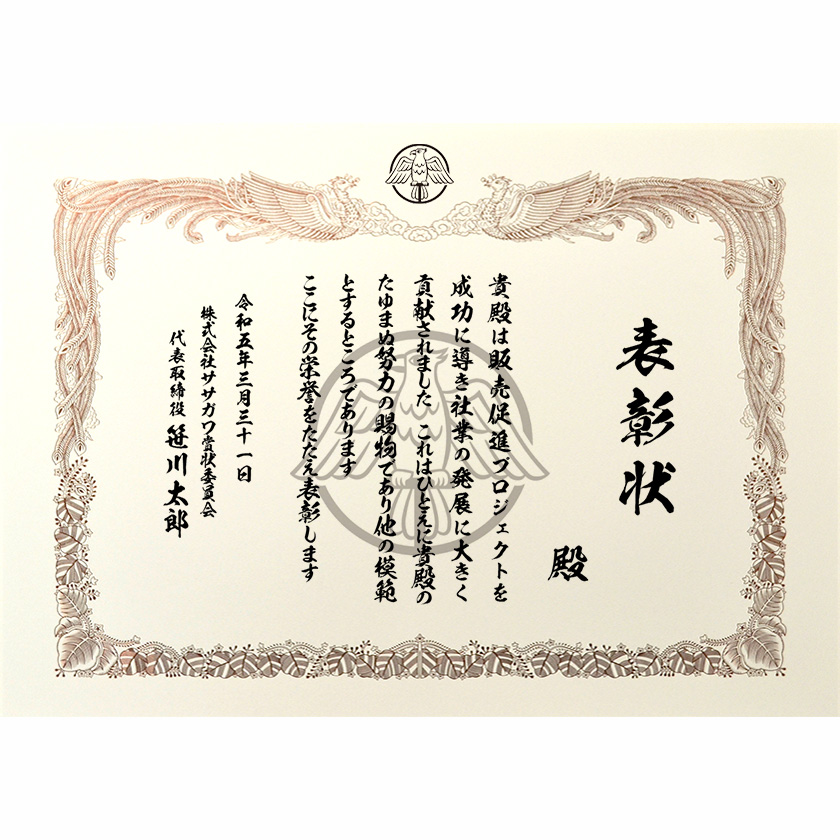 表彰状
殿
貴殿は販売促進プロジェクトを
成功に導き社業の発展に大きく
貢献されました これはひとえに貴殿の
たゆまぬ努力の賜物であり他の模範
とするところであります
ここにその栄誉をたたえ表彰します
令和五年三月三十一日
株式会社ササガワ賞状委員会
代表取締役 笹川太郎